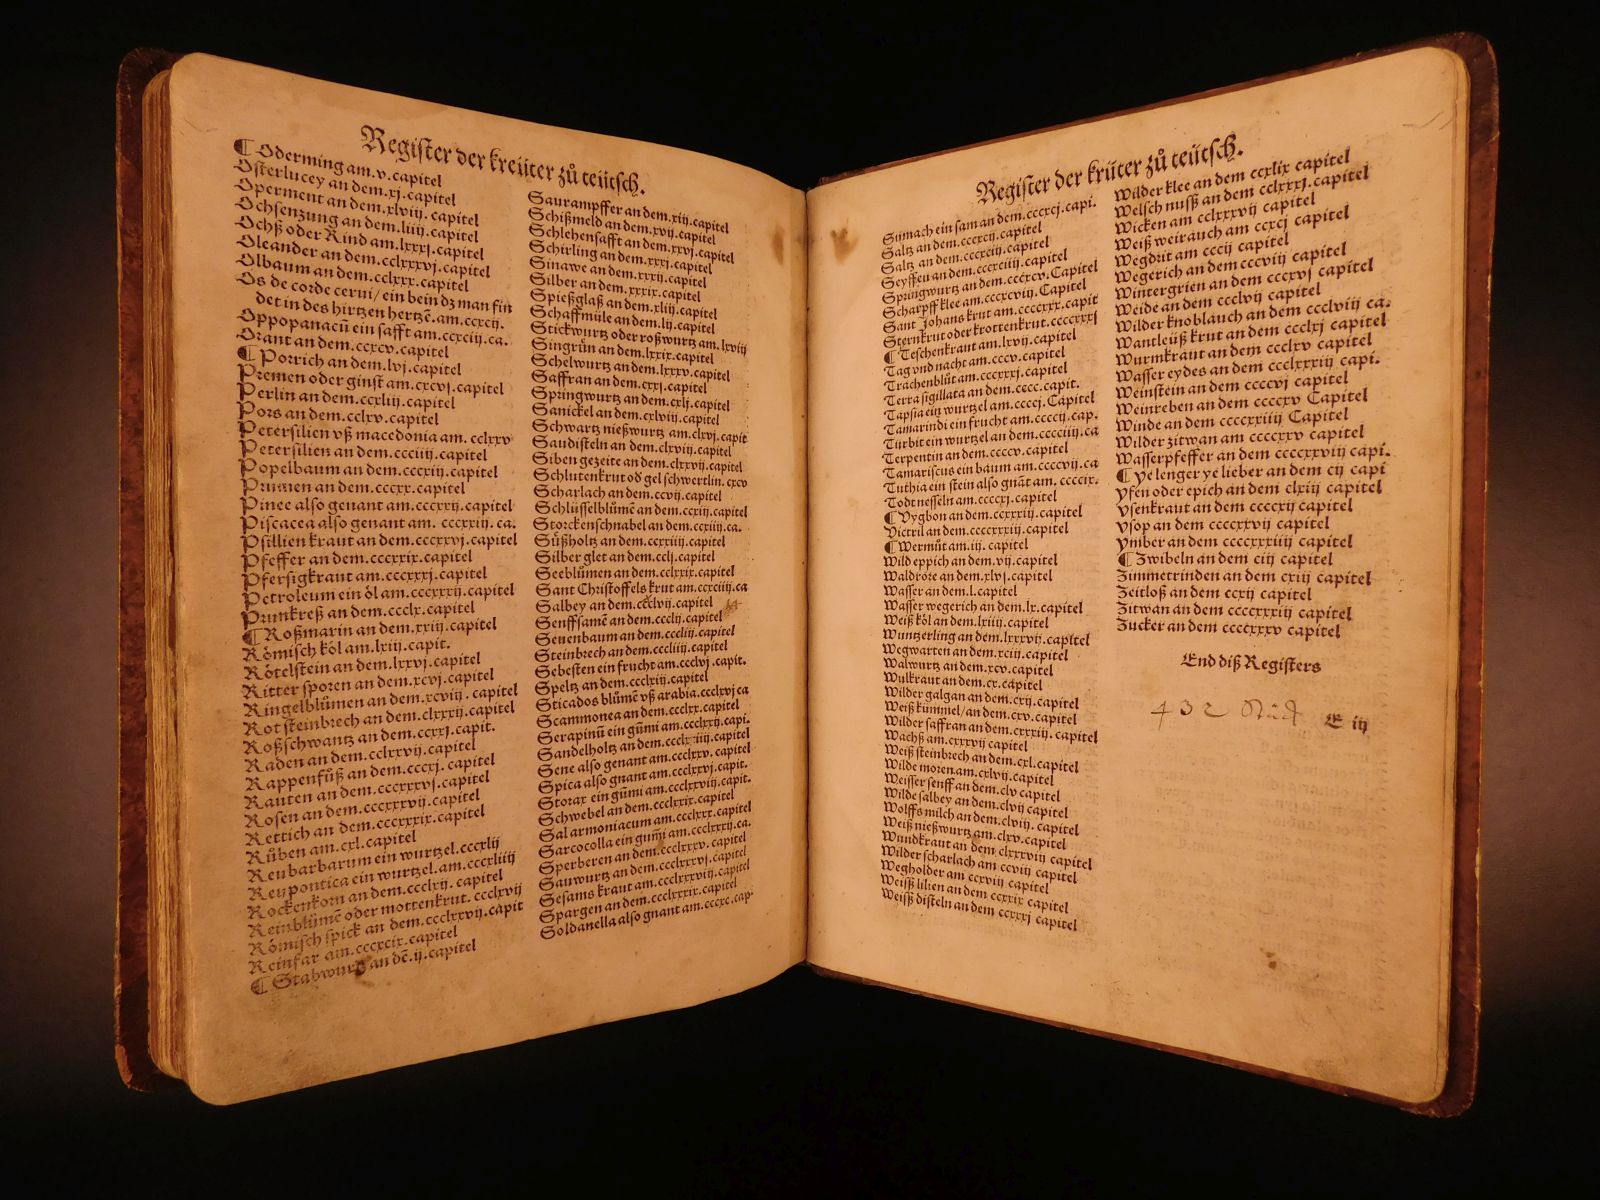 Register der kreüter zů teütsch.
¶ Oderming am.v.capitel
Osterlucey an dem.xj.capitel
Operment an dem.xlviij.capitel
Ochsenzung an dem.liiij.capitel
Ochß oder Rind am.lxxxj.capitel
Oleander an dem.cclxxxvj.capitel
Olbaum an dem.cclxxx.capitel
Os de corde cerui/ ein bein dz man fin
det in des hirtzen hertzē.am.ccxcij.
Oppopanacū ein safft am.ccxciij.ca.
Orant an dem.ccxcv.capitel
¶ Porrich an dem.lvj.capitel
Premen oder ginst am.cxcvj.capitel
Perlin an dem.ccxliij.capitel
Pors an dem.cclxv.capitel
Petersilien vß macedonia am.cclxxv
Petersilien an dem.ccciiij.capitel
Popelbaum an dem.cccxiij.capitel
Prumen an dem.cccxx.capitel
Pinee also genant am.cccxxij.capitel
Piscacea also genant am.cccxxiij.ca.
Psillien kraut an dem.cccxxvj.capitel
Pfeffer an dem.cccxxix.capitel
Pfersigkraut am.cccxxxj.capitel
Petroleum ein öl am.cccxxxij.capitel
Prunkreß an dem.ccclx.capitel
¶ Roßmarin an dem.xxiij.capitel
Römisch köl am.lxiij.capit.
Rötelstein an dem.lxxvj.capitel
Ritter sporen an dem.xcvj.capitel
Ringelblůmen an dem.xcviij.capitel
Rot steinbrech an dem.clxxxij.capitel
Roßschwantz an dem.ccxxj.capit.
Raden an dem.cclxxvij.capitel
Rappenfůß an dem.cccxj.capitel
Rauten an dem.cccxxxvj.capitel
Rosen an dem.cccxxxvij.capitel
Rettich an dem.cccxxxix.capitel
Růben am.cxl.capitel
Reubarbarum ein wurtzel.cccxlij
Reupontica ein wurtzel.am.cccxliiij
Rockenkorn an dem.ccclxij.capitel
Reinblůmē oder mottenkrut.ccclxvij
Römisch spick an dem.ccclxxvij.capit
Reinfar am.cccxcix.capitel
¶ Stabwurtz an dē.ij.capitel
Saurampffer an dem.xiij.capitel
Schißmeld an dem.xvij.capitel
Schlehensafft an dem.xxvj.capitel
Schirling an dem.xxxj.capitel
Sinawe an dem.xxxij.capitel
Silber an dem.xxxix.capitel
Spießglaß an dem.xliij.capitel
Schaffmüle an dem.lij.capitel
Stickwurtz oder roßwurtz am.lxviij
Singrůn an dem.lxxix.capitel
Schelwurtz an dem.lxxxv.capitel
Saffran an dem.cxxj.capitel
Springwurtz an dem.cxlj.capitel
Sanickel an dem.cxlviij.capitel
Schwartz nießwurtz am.clxvj.capit
Saudisteln an dem.clxviij.capitel
Siben gezeite an dem.clxxvij.capitel
Schlutenkrut oď gel schwertlin.cxcv
Scharlach an dem.ccvij.capitel
Schlüsselblůmē an dem.ccxiij.capitel
Storckenschnabel an dem.ccxiiij.ca.
Süßholtz an dem.ccxxiiij.capitel
Silber glet an dem.cclj.capitel
Seeblůmen an dem.cclxxix.capitel
Sant Christoffels krut am.ccxciiij.ca
Salbey an dem.ccclvij.capitel
Senffsamē an dem.cccliij.capitel
Seuenbaum an dem.cccliiij.capitel
Steinbrech an dem.cccliiij.capitel
Sebesten ein frucht am.ccclvj.capit.
Speltz an dem.ccclxiij.capitel
Sticados blůmē vß arabia.ccclxvj ca
Scammonea an dem.ccclxx.capitel
Serapinū ein gūmi am.ccclxxij.capi.
Sandelholtz an dem.ccclxxiiij.capitel
Sene also genant am.ccclxxv.capitel
Spica also gnant am.ccclxxvj.capit.
Storax ein gūmi am.ccclxxviij.capit.
Schwebel an dem.ccclxxix.capitel
Sal armoniacum am.ccclxxx.capitel
Sarcocolla ein gumi am.ccclxxxij.ca.
Sperberen an dem.ccclxxxv.capitel
Sauwurtz an dem.ccclxxxvj.capitel
Sesams kraut am.ccclxxxviij.capitel
Spargen an dem.ccclxxxix.capitel
Soldanella also gnant am.cccxc.cap.
Register der krüter zů teütsch.
Sumach ein sam an dem.cccxcj.capi.
Saltz an dem.cccxcij.capitel
Saltz an dem.cccxciij.capitel
Seyffen an dem.cccxciiij.capitel
Springwurtz an dem.cccxcv.Capitel
Scharpff klee am.cccxcviij.Capitel
Sant Johans krut am.ccccxxx.capit
Sternkrut oder krottenkrut.ccccxxxj
¶ Teschenkraut am.lxvij.capitel
Tag vnd nacht am.cccv.capitel
Trachenblůt am.cccxxxj.capitel
Terra sigillata an dem.cccc.capit.
Tapsia ein wurtzel am.ccccj.Capitel
Tamarindi ein frucht am.ccccij.cap.
Turbit ein wurtzel an dem.cccciiij.ca
Terpentin an dem.ccccv.capitel
Tamariscus ein baum am.ccccvij.ca
Tuthia ein stein also gnāt am.ccccix.
Todtnesseln am.ccccxj.capitel
¶ Vygbon an dem.ccxxxiij.capitel
Victril an dem.ccccxxxiij.capitel
¶ Wermůt am.iij.capitel
Wild eppich an dem.vij.capitel
Waldröte an dem.xlvj.capitel
Wasser an dem.l.capitel
Wasser wegerich an dem.lx.capitel
Weiß köl an dem.lxiiij.capitel
Wuntzerling an dem.lxxxvij.capitel
Wegwarten an dem.xciij.capitel
Walwurtz an dem.xcv.capitel
Wulkraut an dem.cx.capitel
Wilder galgan an dem.cxij.capitel
Weiß kümmel/an dem.cxv.capitel
Wilder saffran an dem.cxxxiij.capitel
Wachß am.cxxxvij capitel
Weiß steinbrech an dem.cxl.capitel
Wilde moten am.cxlvij.capitel
Weisser senff an dem.clv capitel
Wilde salbey an dem.clvij capitel
Wolffs milch an dem.clviij.capitel
Weiß nießwurtz am.clxv.capitel
Wundkraut an dem clxxxviij capitel
Wilder scharlach am ccviij capitel
Wegholder am ccxviij capitel
Weiß lilien an dem ccxxix capitel
Weiß disteln an dem ccxxxj capitel
Wilder klee an dem ccxlix capitel
Welsch nuß an dem cclxxxj.capitel
Wicken am cclxxxvij capitel
Weiß weirauch am ccxcj capitel
Wegdrit am cccij capitel
Wegerich an dem cccviij capitel
Wintergrien an dem cccxvj capitel
Weide an dem ccclvij capitel
Wilder knoblauch an dem ccclviij ca.
Wantleüß krut an dem ccclxj capitel
Wurmkraut an dem ccclxv capitel
Wasser eydes an dem ccclxxxiij capi.
Weinstein an dem ccccvj capitel
Weinreben an dem ccccxv Capitel
Winde am ccccxxiiij Capitel
Wilder zitwan am ccccxxv capitel
Wasserpfeffer an dem ccccxxviij capi.
¶ Ye lenger ye lieber an dem cij capi
Yfen oder epich an dem clxiij capitel
Ysenkraut an dem ccccxij capitel
Ysop an dem ccccxxvij capitel
Ymber an dem ccccxxxiiij capitel
¶ Zwibeln an dem ciij capitel
Zimmetrinden an dem cxiij capitel
Zeitloß an dem ccxij capitel
Zitwan an dem ccccxxxiij capitel
Zucker an dem ccccxxxv capitel
End diß Registers
432 Stuck
E iij